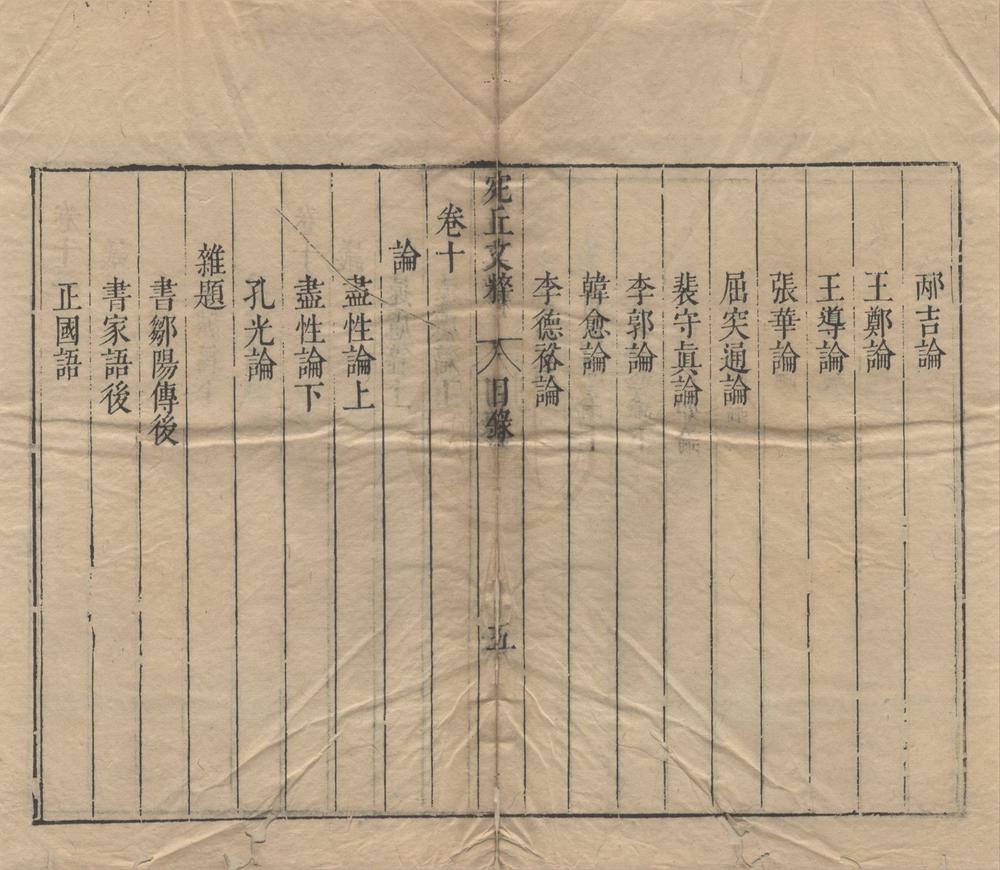 邴吉論
王鄭論
王導論
張華論
屈突通論
裴守真論
李郭論
韓愈論
李德裕論
宛丘文粹 目錄 五
卷十
論
盡性論上
盡性論下
孔光論
雜題
書鄒陽傳後
書家語後
正國語